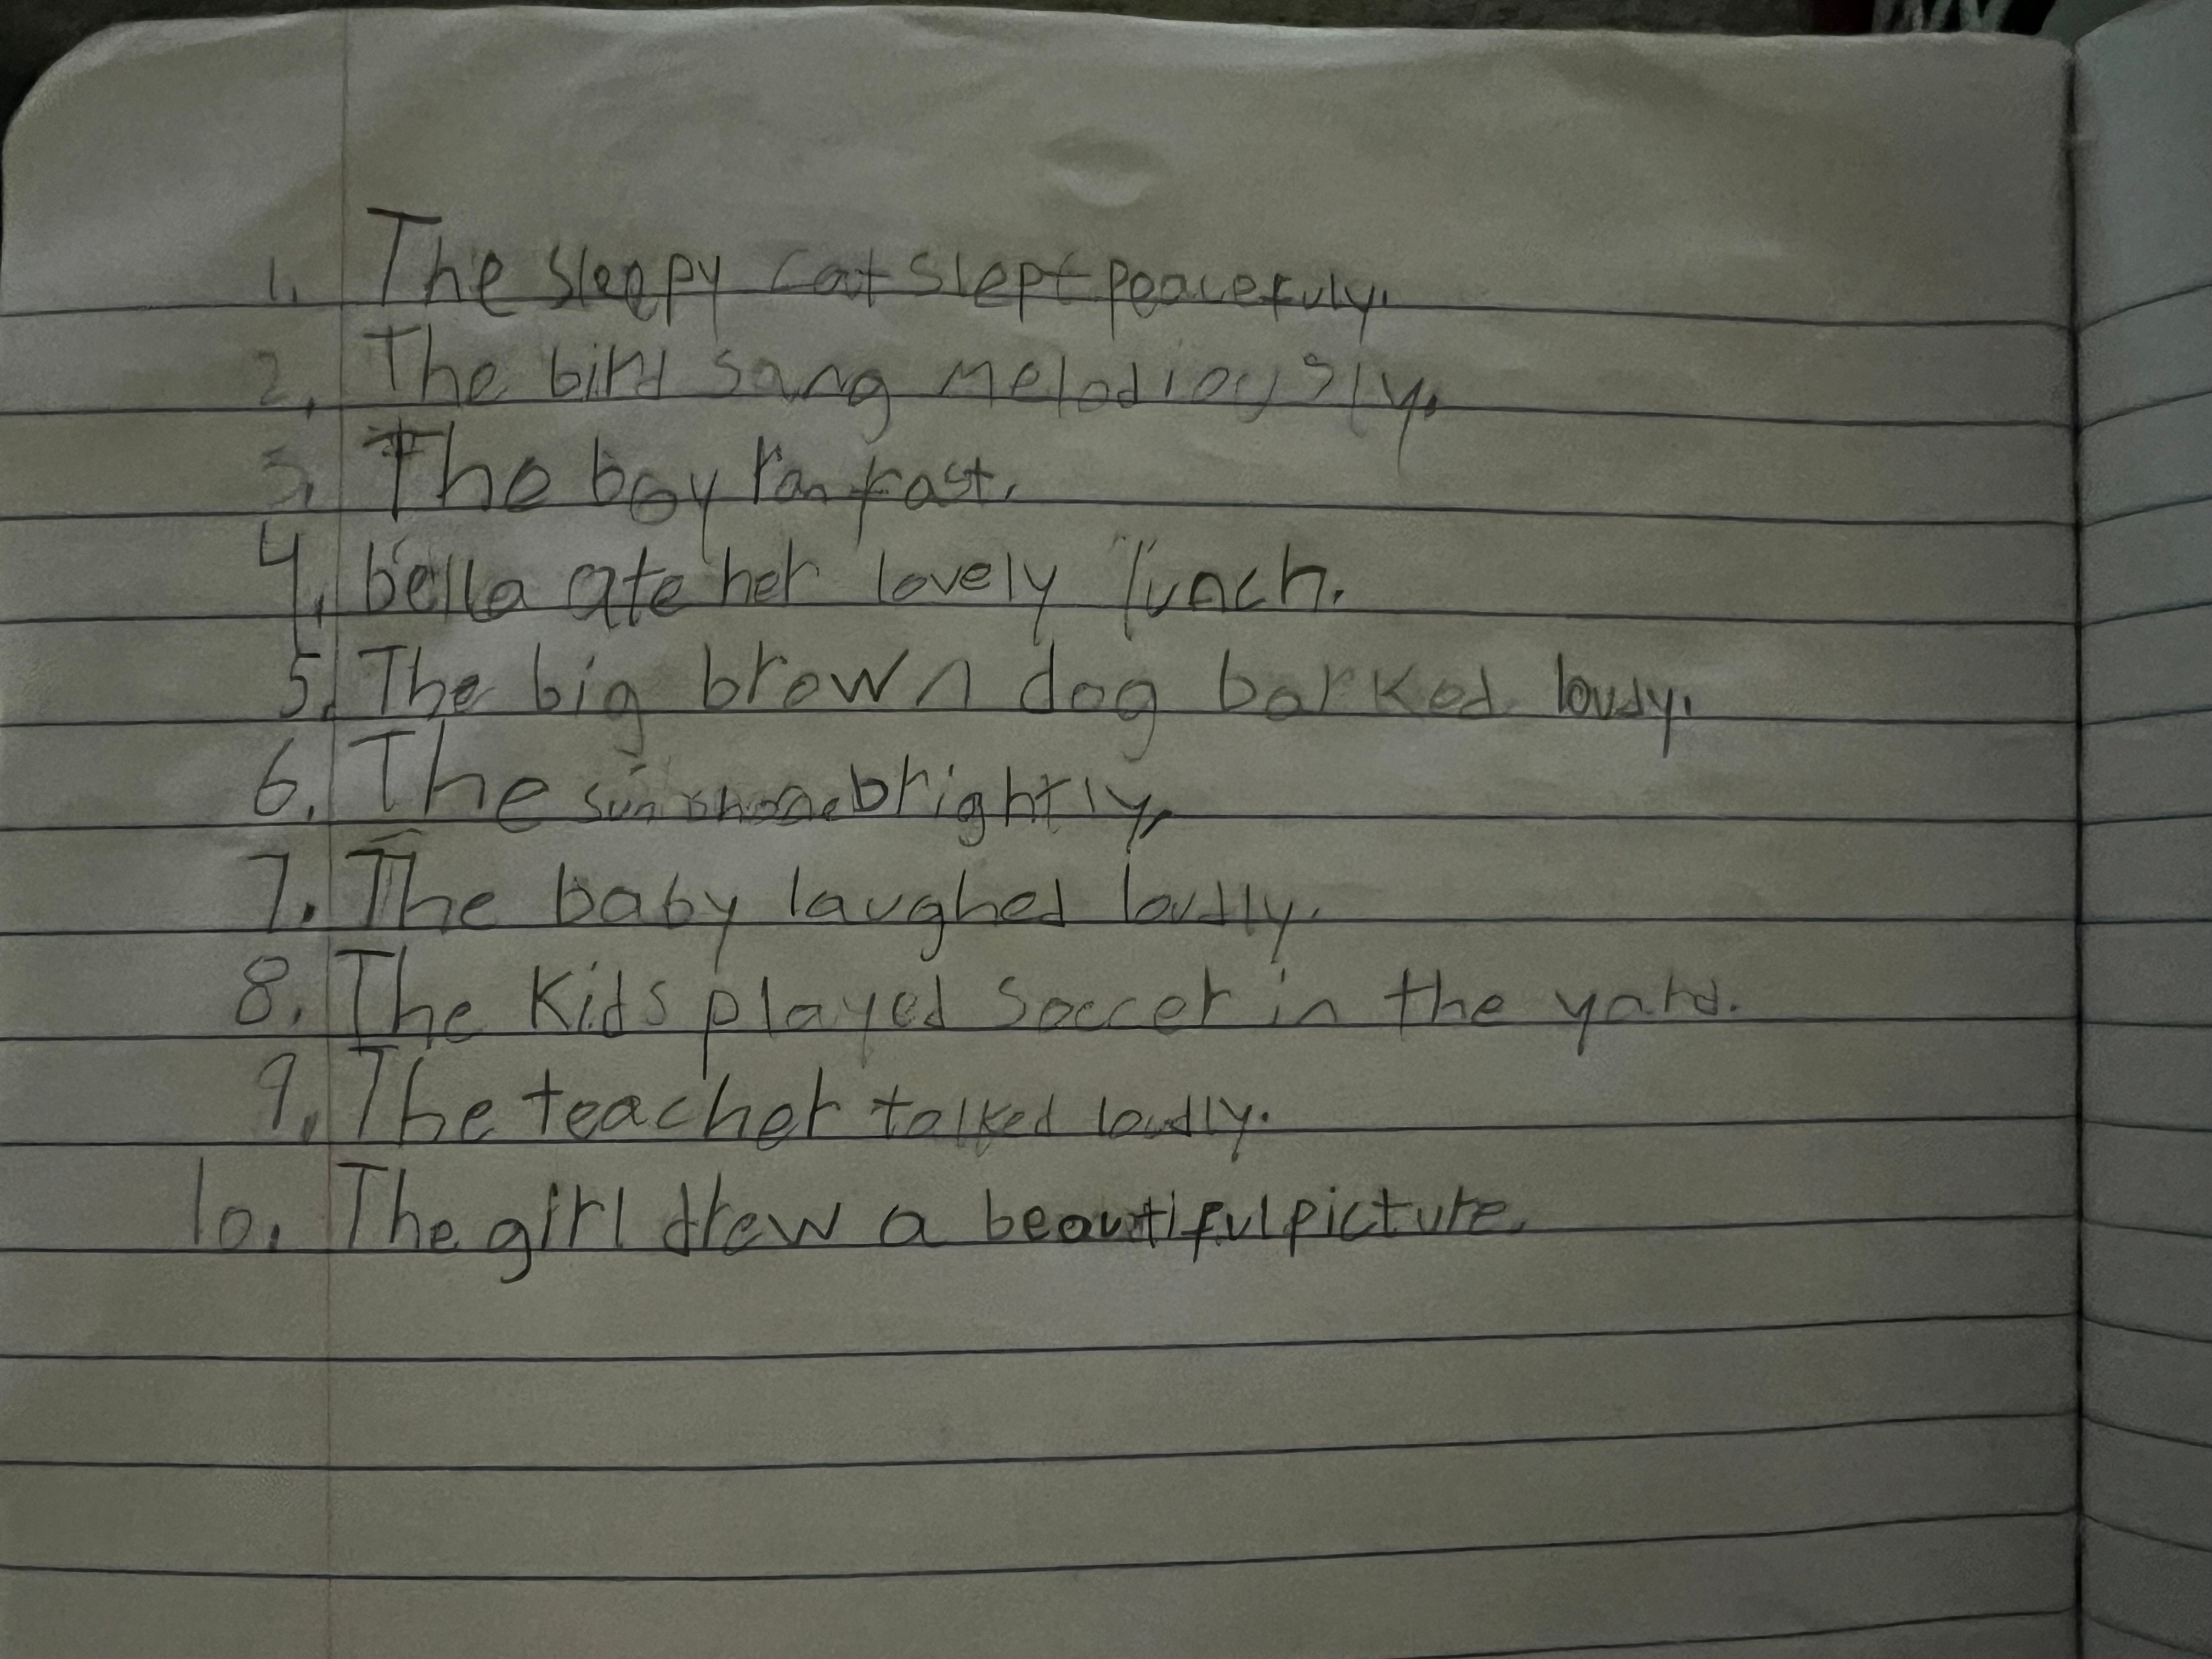 1. The sleepy cat slept peacefuly.
2. The bird sang melodiously.
3. The boy ran fast.
4. bella ate her lovely lunch.
5. The big brown dog barked loudy.
6. The sun shone brightly.
7. The baby laughed loudly.
8. The Kids played soccer in the yard.
9. The teacher talked loudly.
10. The girl drew a beautiful picture.